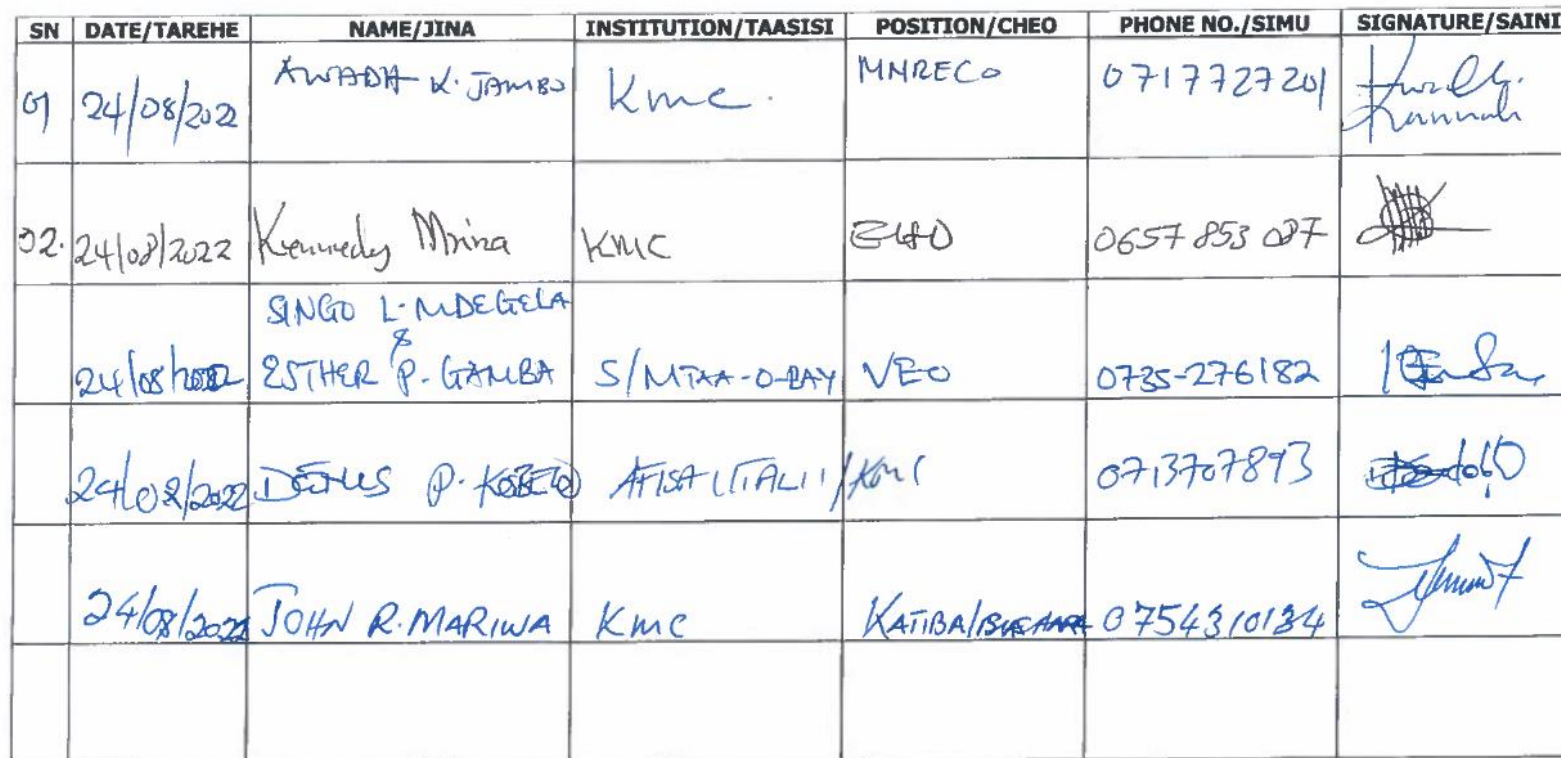 SN DATE/TAREHE NAME/JINA INSTITUTION/TAASISI POSITION/CHEO PHONE NO./SIMU SIGNATURE/SAINI
01 24/08/2022 AWADH K. JAMBO Kmc. MNRECO 0717727201
02. 24/08/2022 Kennedy Mrina KMC 0657 853 087
SINGO L. MDEGELA
&
24/08/2022 ESTHER P. GAMBA S/MTAA-O-BAY VEO 0735-276182
24/08/2022 P. AFISA UTALII/KMC 0713707893
24/08/2022 JOHN R. MARIWA KMC KATIBA/ 0754310134